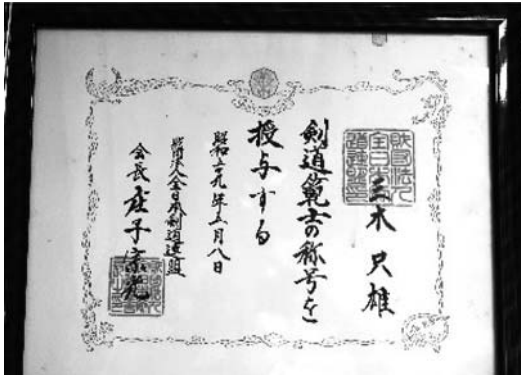 三木只雄
剣道範士の称号を
授与する
昭和五九年五月八日
財団法人全日本剣道連盟
会長 庄子宗光